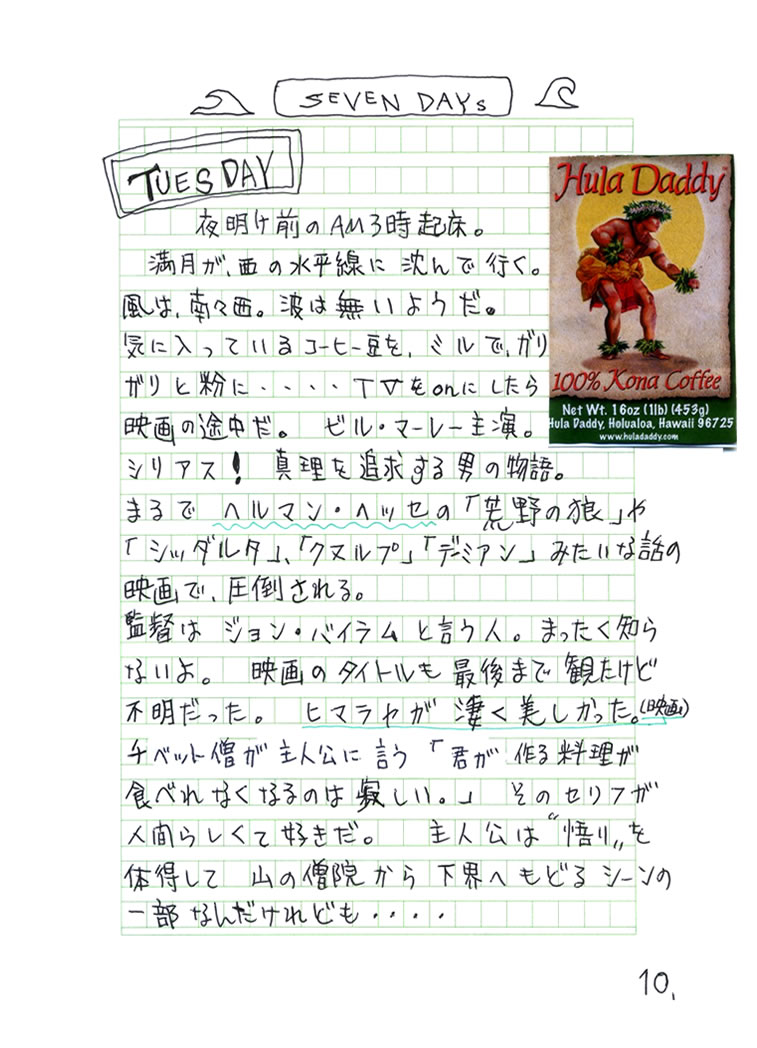 SEVEN DAYs
TUESDAY
夜明け前のAM3時起床。
満月が、西の水平線に沈んで行く。
風は、南々西。波は無いようだ。
気に入っているコーヒー豆を、ミルで、ガリ
ガリと粉に・・・・TVをonにしたら
映画の途中だ。 ビル・マーレー主演。
シリアス! 真理を追求する男の物語。
まるで ヘルマン・ヘッセの「荒野の狼」や
「シッダルタ」、「クヌルプ」「デミアン」みたいな話の
映画で、圧倒される。
監督は ジョン・バイラム と言う人。まったく知ら
ないよ。 映画のタイトルも 最後まで 観たけど
不明だった。 ヒマラヤが 凄く美しかった。(映画)
チベット僧が主人公に言う 「君が 作る料理が
食べれなくなるのは寂しい。」 そのセリフが
人間らしくて好きだ。 主人公は〝悟り〟を
体得して 山の僧院から下界へもどるシーンの
一部なんだけれども・・・・
10.
Hula Daddy
100% Kona Coffee
Net Wt. 16oz (1lb) (453g)
Hula Daddy, Holualoa, Hawaii 96725
www.huladaddy.com